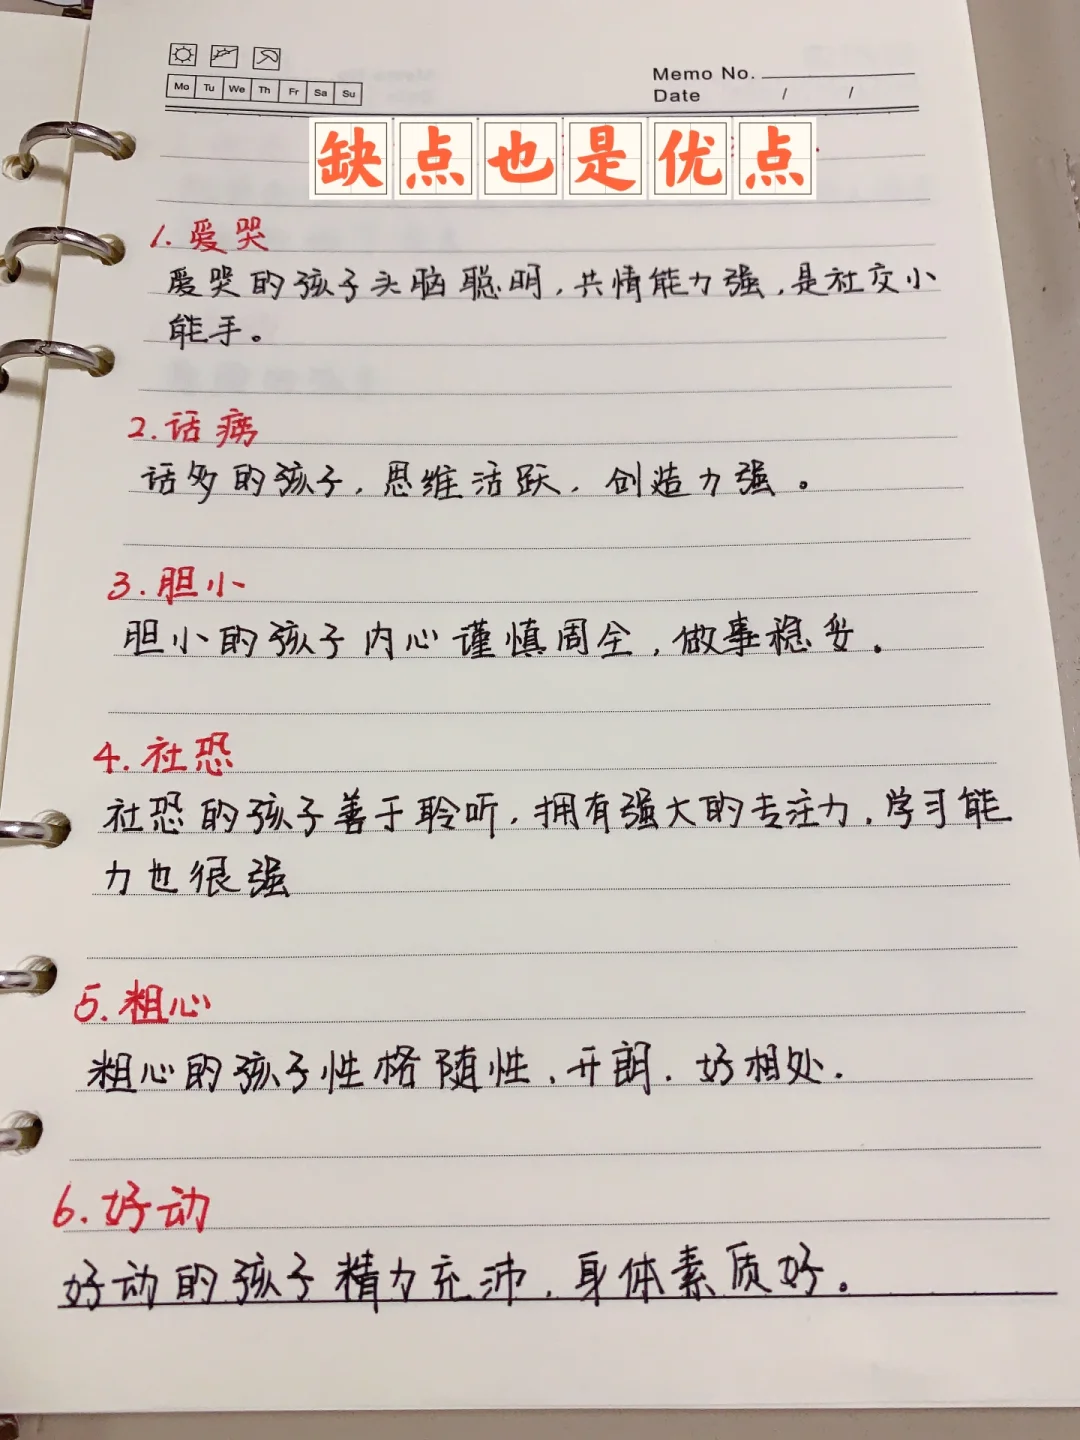 Mo Tu We Th Fr Sa Su
Memo No.
Date / /
缺点也是优点
1.爱哭
爱哭的孩子头脑聪明,共情能力强,是社交小
能手。
2.话痨
话多的孩子,思维活跃,创造力强。
3.胆小
胆小的孩子内心谨慎周全,做事稳妥。
4.社恐
社恐的孩子善于聆听,拥有强大的专注力,学习能
力也很强
5.粗心
粗心的孩子性格随性、开朗.好相处.
6.好动
好动的孩子精力充沛,身体素质好。